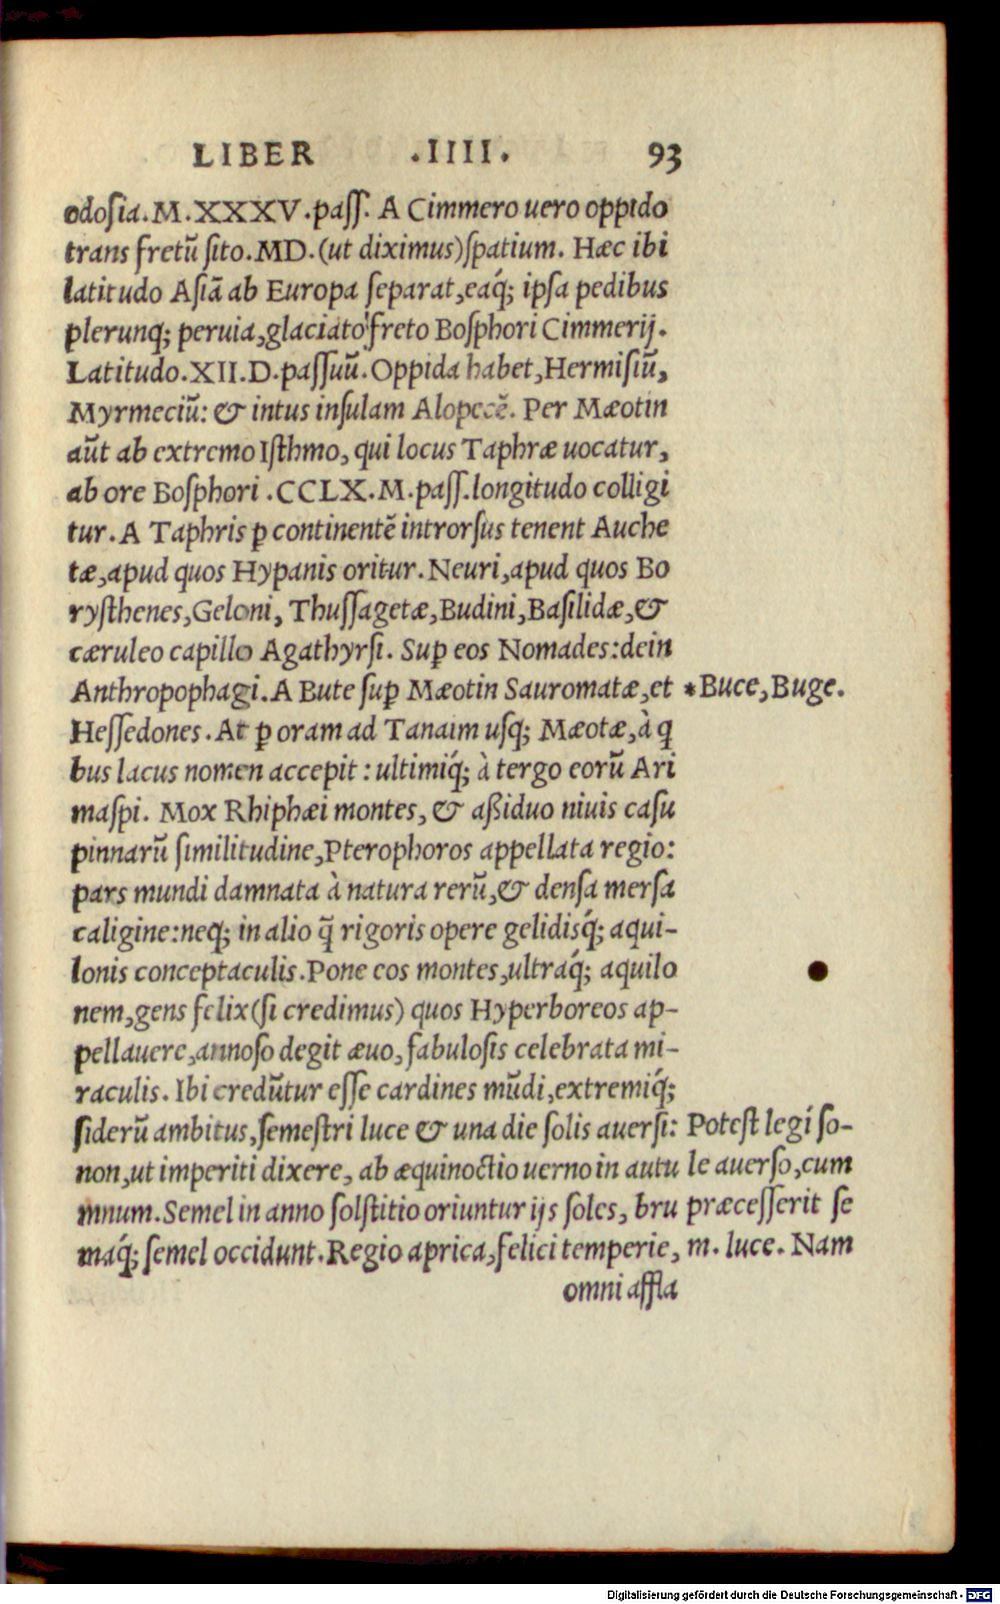 LIBER .IIII. 93
odosia. M. XXXV. pass. A Cimmero uero oppido
trans fretū sito. MD. (ut diximus) spatium. Hæc ibi
latitudo Asiā ab Europa separat, eaq́; ipsa pedibus
plerunq; peruia, glaciato freto Bosphori Cimmerij.
Latitudo. XII. D. passuū. Oppida habet, Hermisiū,
Myrmeciū: & intus insulam Alopecē. Per Mæotin
aūt ab extremo Isthmo, qui locus Taphræ uocatur,
ab ore Bosphori . CCLX. M. pass. longitudo colligi
tur. A Taphris ꝑ continentē introrsus tenent Auche
tæ, apud quos Hypanis oritur. Neuri, apud quos Bo
rysthenes, Geloni, Thussagetæ, Budini, Basilidæ, &
cæruleo capillo Agathyrsi. Suꝑ eos Nomades: dein
Anthropophagi. A Bute suꝑ Mæotin Sauromatæ, et
Hessedones. At ꝑ oram ad Tanaim usq; Mæotæ, à q
bus lacus nomen accepit: ultimiq́; à tergo eorū Ari
maspi. Mox Rhiphæi montes, & aßiduo niuis casu
pinnarū similitudine, Pterophoros appellata regio:
pars mundi damnata à natura rerū, & densa mersa
caligine: neq; in alio q̄ rigoris opere gelidisq́; aqui-
lonis conceptaculis. Pone eos montes, ultraq́; aquilo
nem, gens felix (si credimus) quos Hyperboreos ap-
pellauere, annoso degit æuo, fabulosis celebrata mi-
raculis. Ibi credūtur esse cardines mūdi, extremiq́;
siderū ambitus, semestri luce & una die solis auersi:
non, ut imperiti dixere, ab æquinoctio uerno in autu
mnum. Semel in anno solstitio oriuntur ijs soles, bru
maq́; semel occidunt. Regio aprica, felici temperie,
omni affla
*Buce, Buge.
Potest legi so-
le auerso, cum
præcesserit se
m. luce. Nam
Digitalisierung gefördert durch die Deutsche Forschungsgemeinschaft - DFG